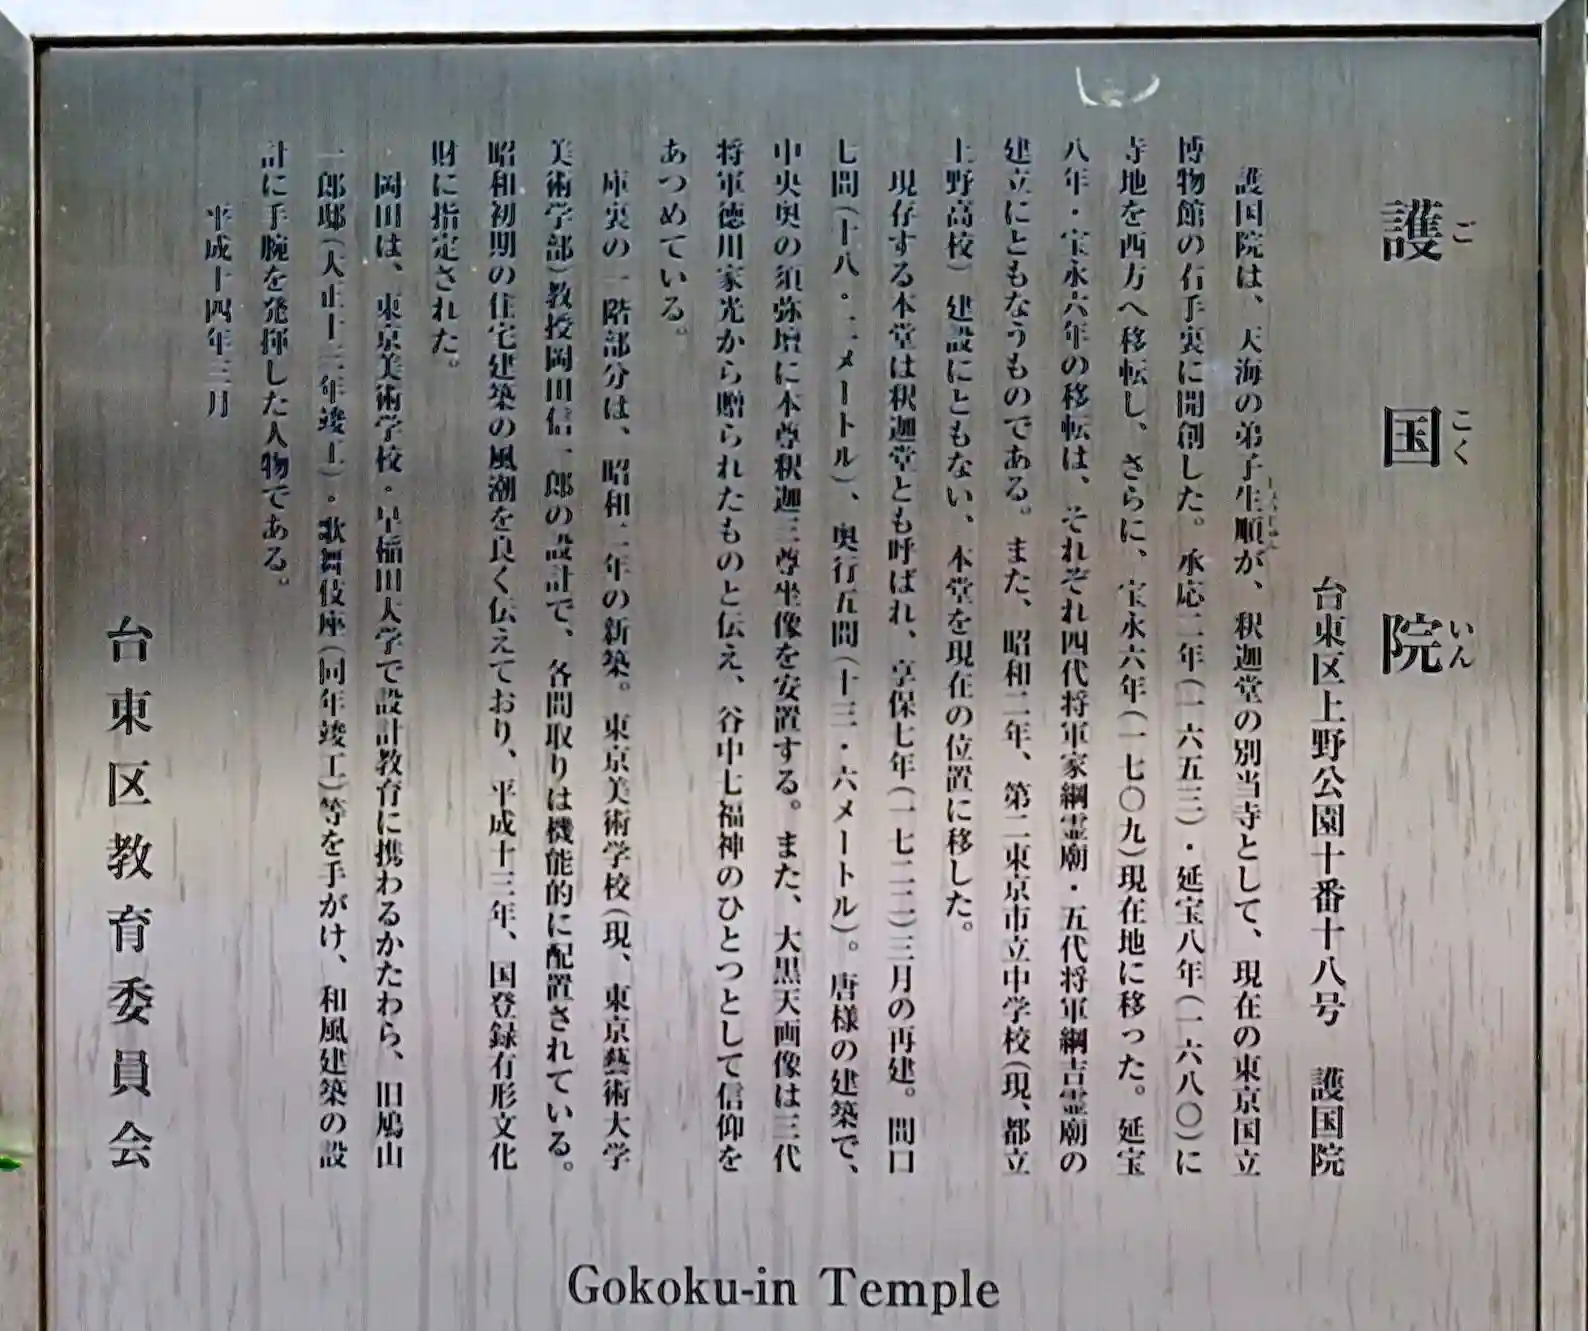 護国院
ごこくいん
台東区上野公園十番十八号　護国院
護国院は、天海の弟子生順が、釈迦堂の別当寺として、現在の東京国立
博物館の右手裏に開創した。承応二年(一六五三)・延宝八年(一六八〇)に
寺地を西方へ移転し、さらに、宝永六年(一七〇九)現在地に移った。延宝
八年・宝永六年の移転は、それぞれ四代将軍家綱霊廟・五代将軍綱吉霊廟の
建立にともなうものである。また、昭和二年、第二東京市立中学校(現、都立
上野高校)建設にともない、本堂を現在の位置に移した。
現存する本堂は釈迦堂とも呼ばれ、享保七年(一七二二)三月の再建。間口
七間(十八・二メートル)、奥行五間(十三・六メートル)。唐様の建築で、
中央奥の須弥壇に本尊釈迦三尊坐像を安置する。また、大黒天画像は三代
将軍徳川家光から贈られたものと伝え、谷中七福神のひとつとして信仰を
あつめている。
庫裏の一階部分は、昭和二年の新築。東京美術学校(現、東京藝術大学
美術学部)教授岡田信一郎の設計で、各間取りは機能的に配置されている。
昭和初期の住宅建築の風潮を良く伝えており、平成十三年、国登録有形文化
財に指定された。
岡田は、東京美術学校・早稲田大学で設計教育に携わるかたわら、旧鳩山
一郎邸(大正十三年竣工)・歌舞伎座(同年竣工)等を手がけ、和風建築の設
計に手腕を発揮した人物である。
平成十四年三月
台東区教育委員会
Gokoku-in Temple